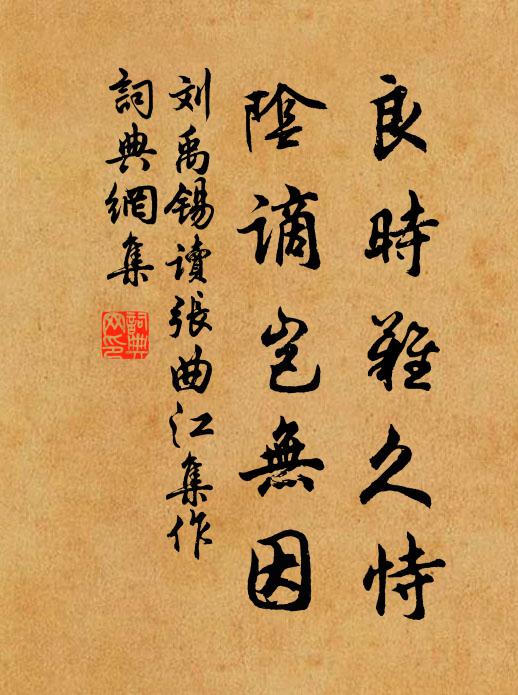 良時難久恃
陰謫豈無因
刘禹锡讀張曲江集作
詞典網集
詞典網印